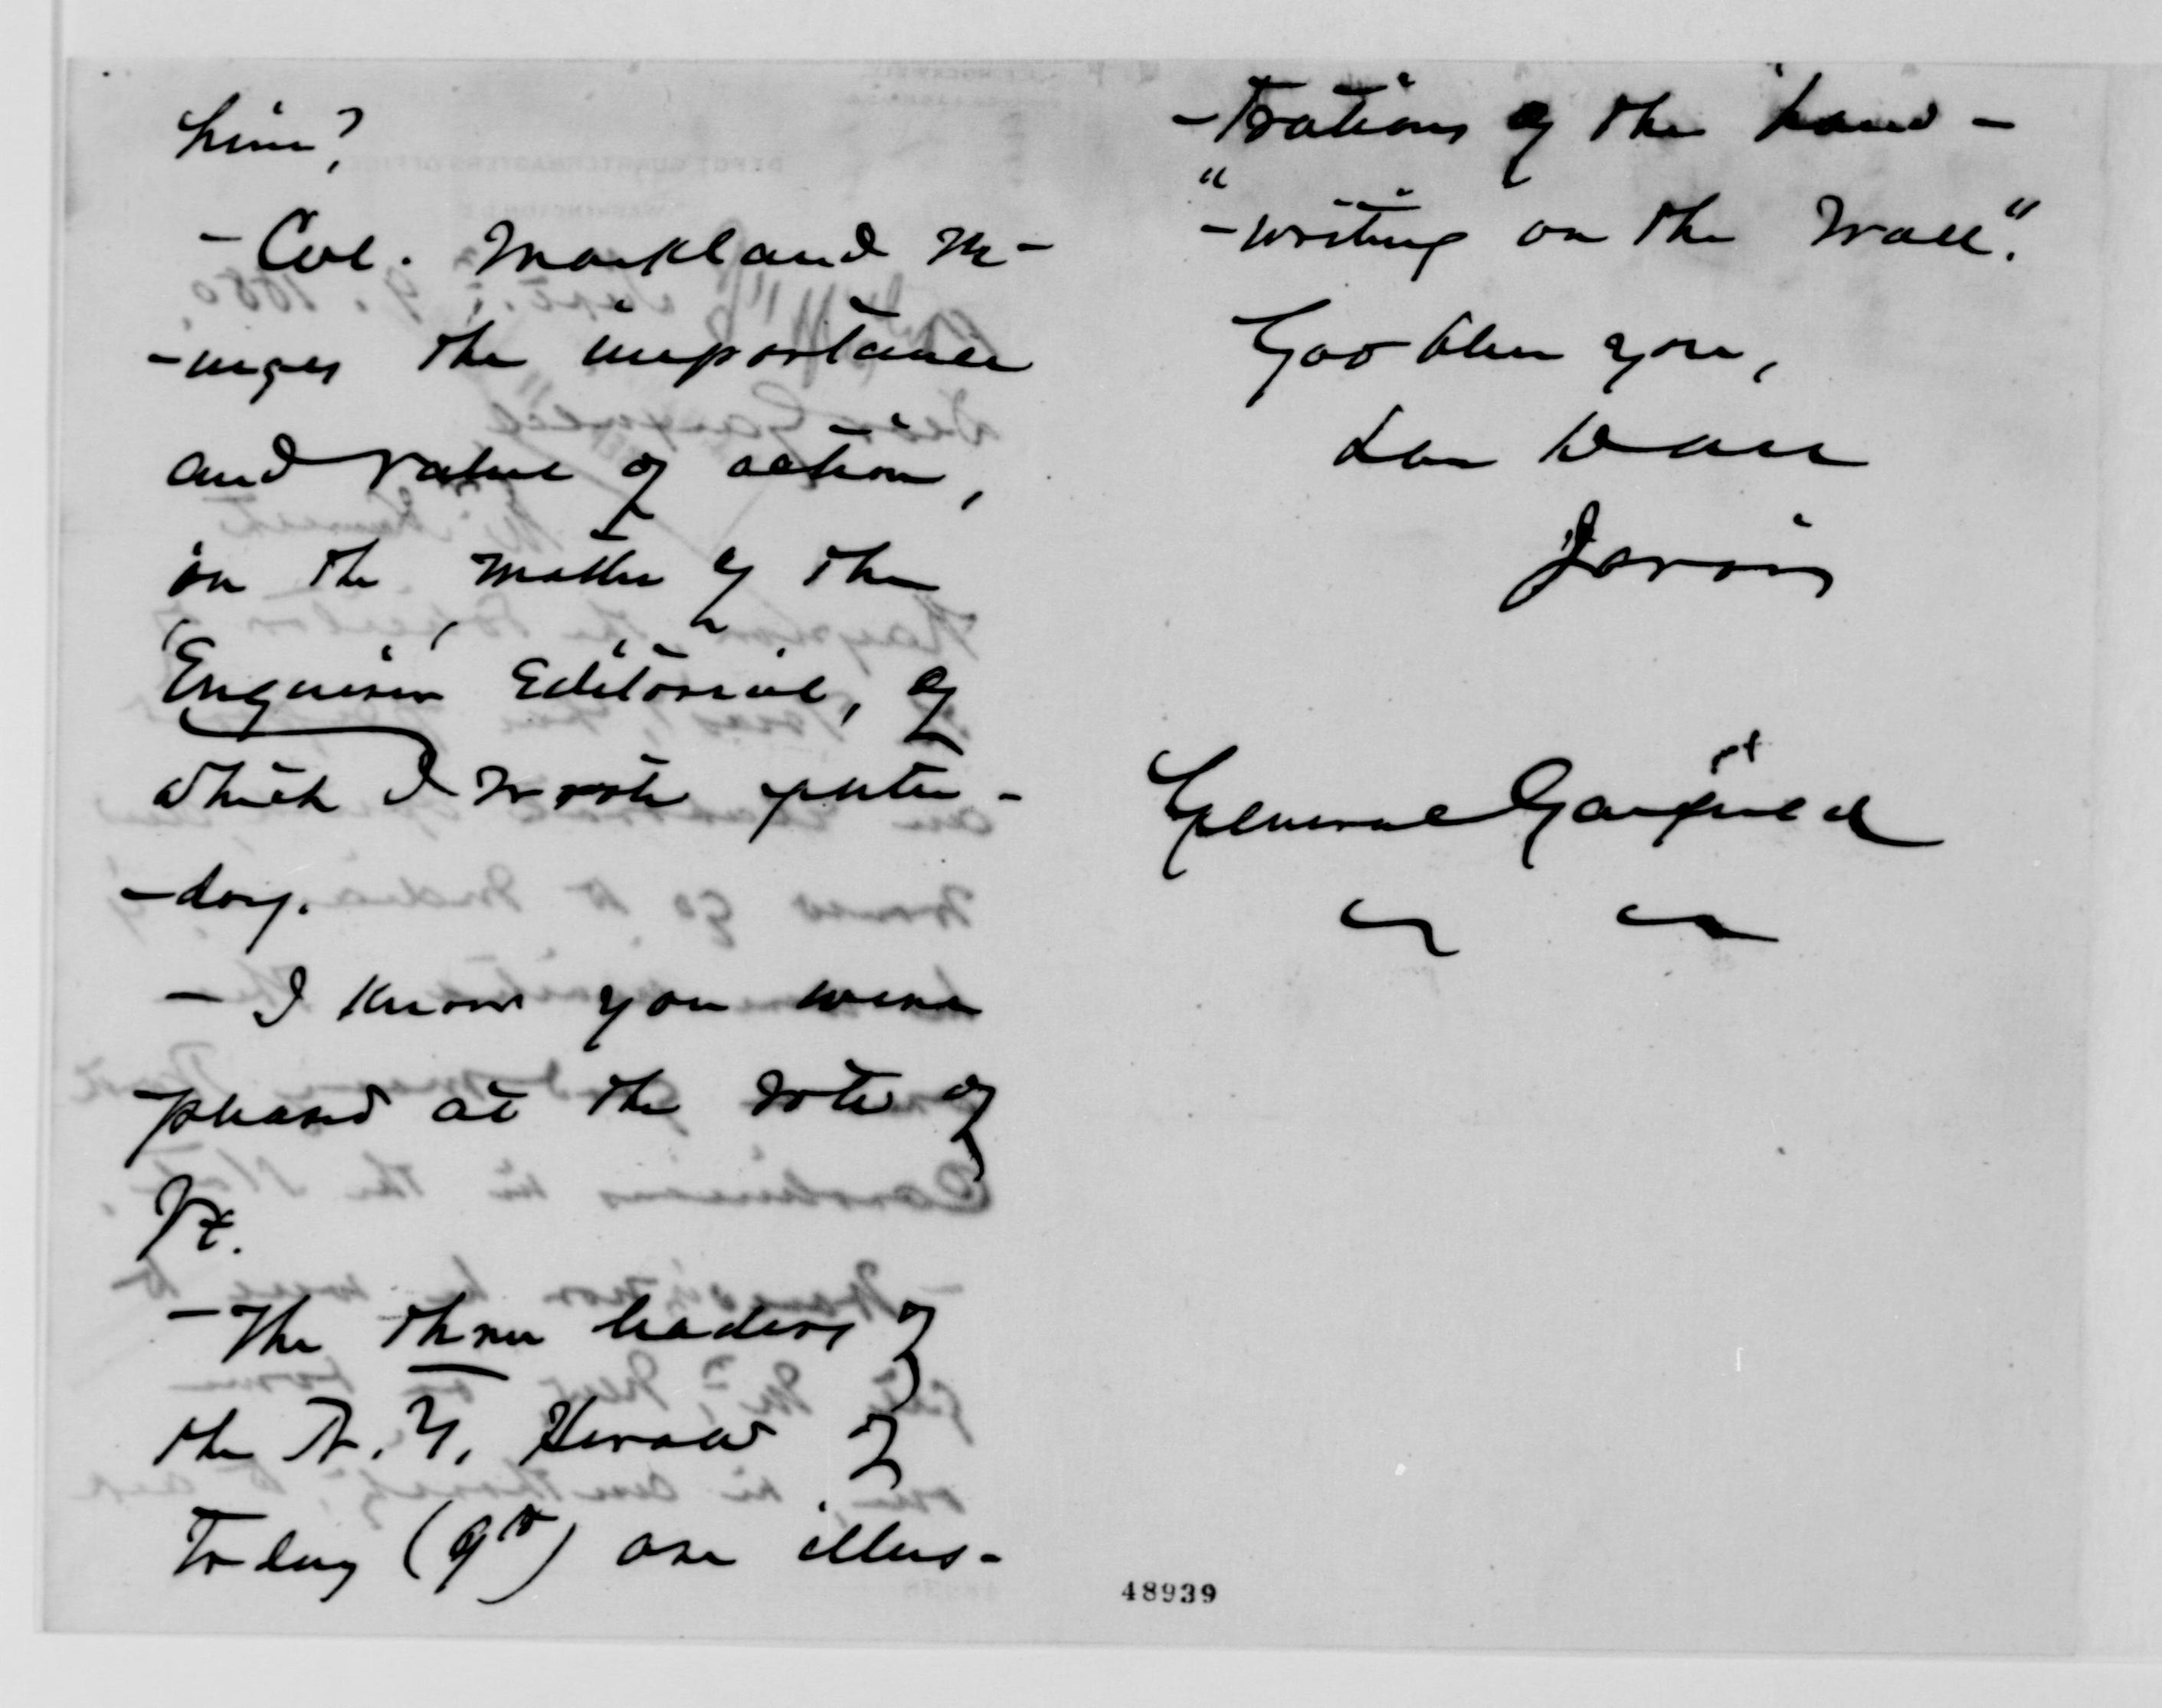 him?
- Col. Markland re-
-urges the importance
and value of action,
in the matter of the
'Enquirer' Editorial, of
which I wrote yester-
-day.
- I know you were
pleased at the vote of
Vt.
- The three leaders of
the N.Y. Herald of
To day (9th) are illus-
-trations of the hand-
"-writing on the Wall".
God bless you,
Jarvis
General Garfield
48939